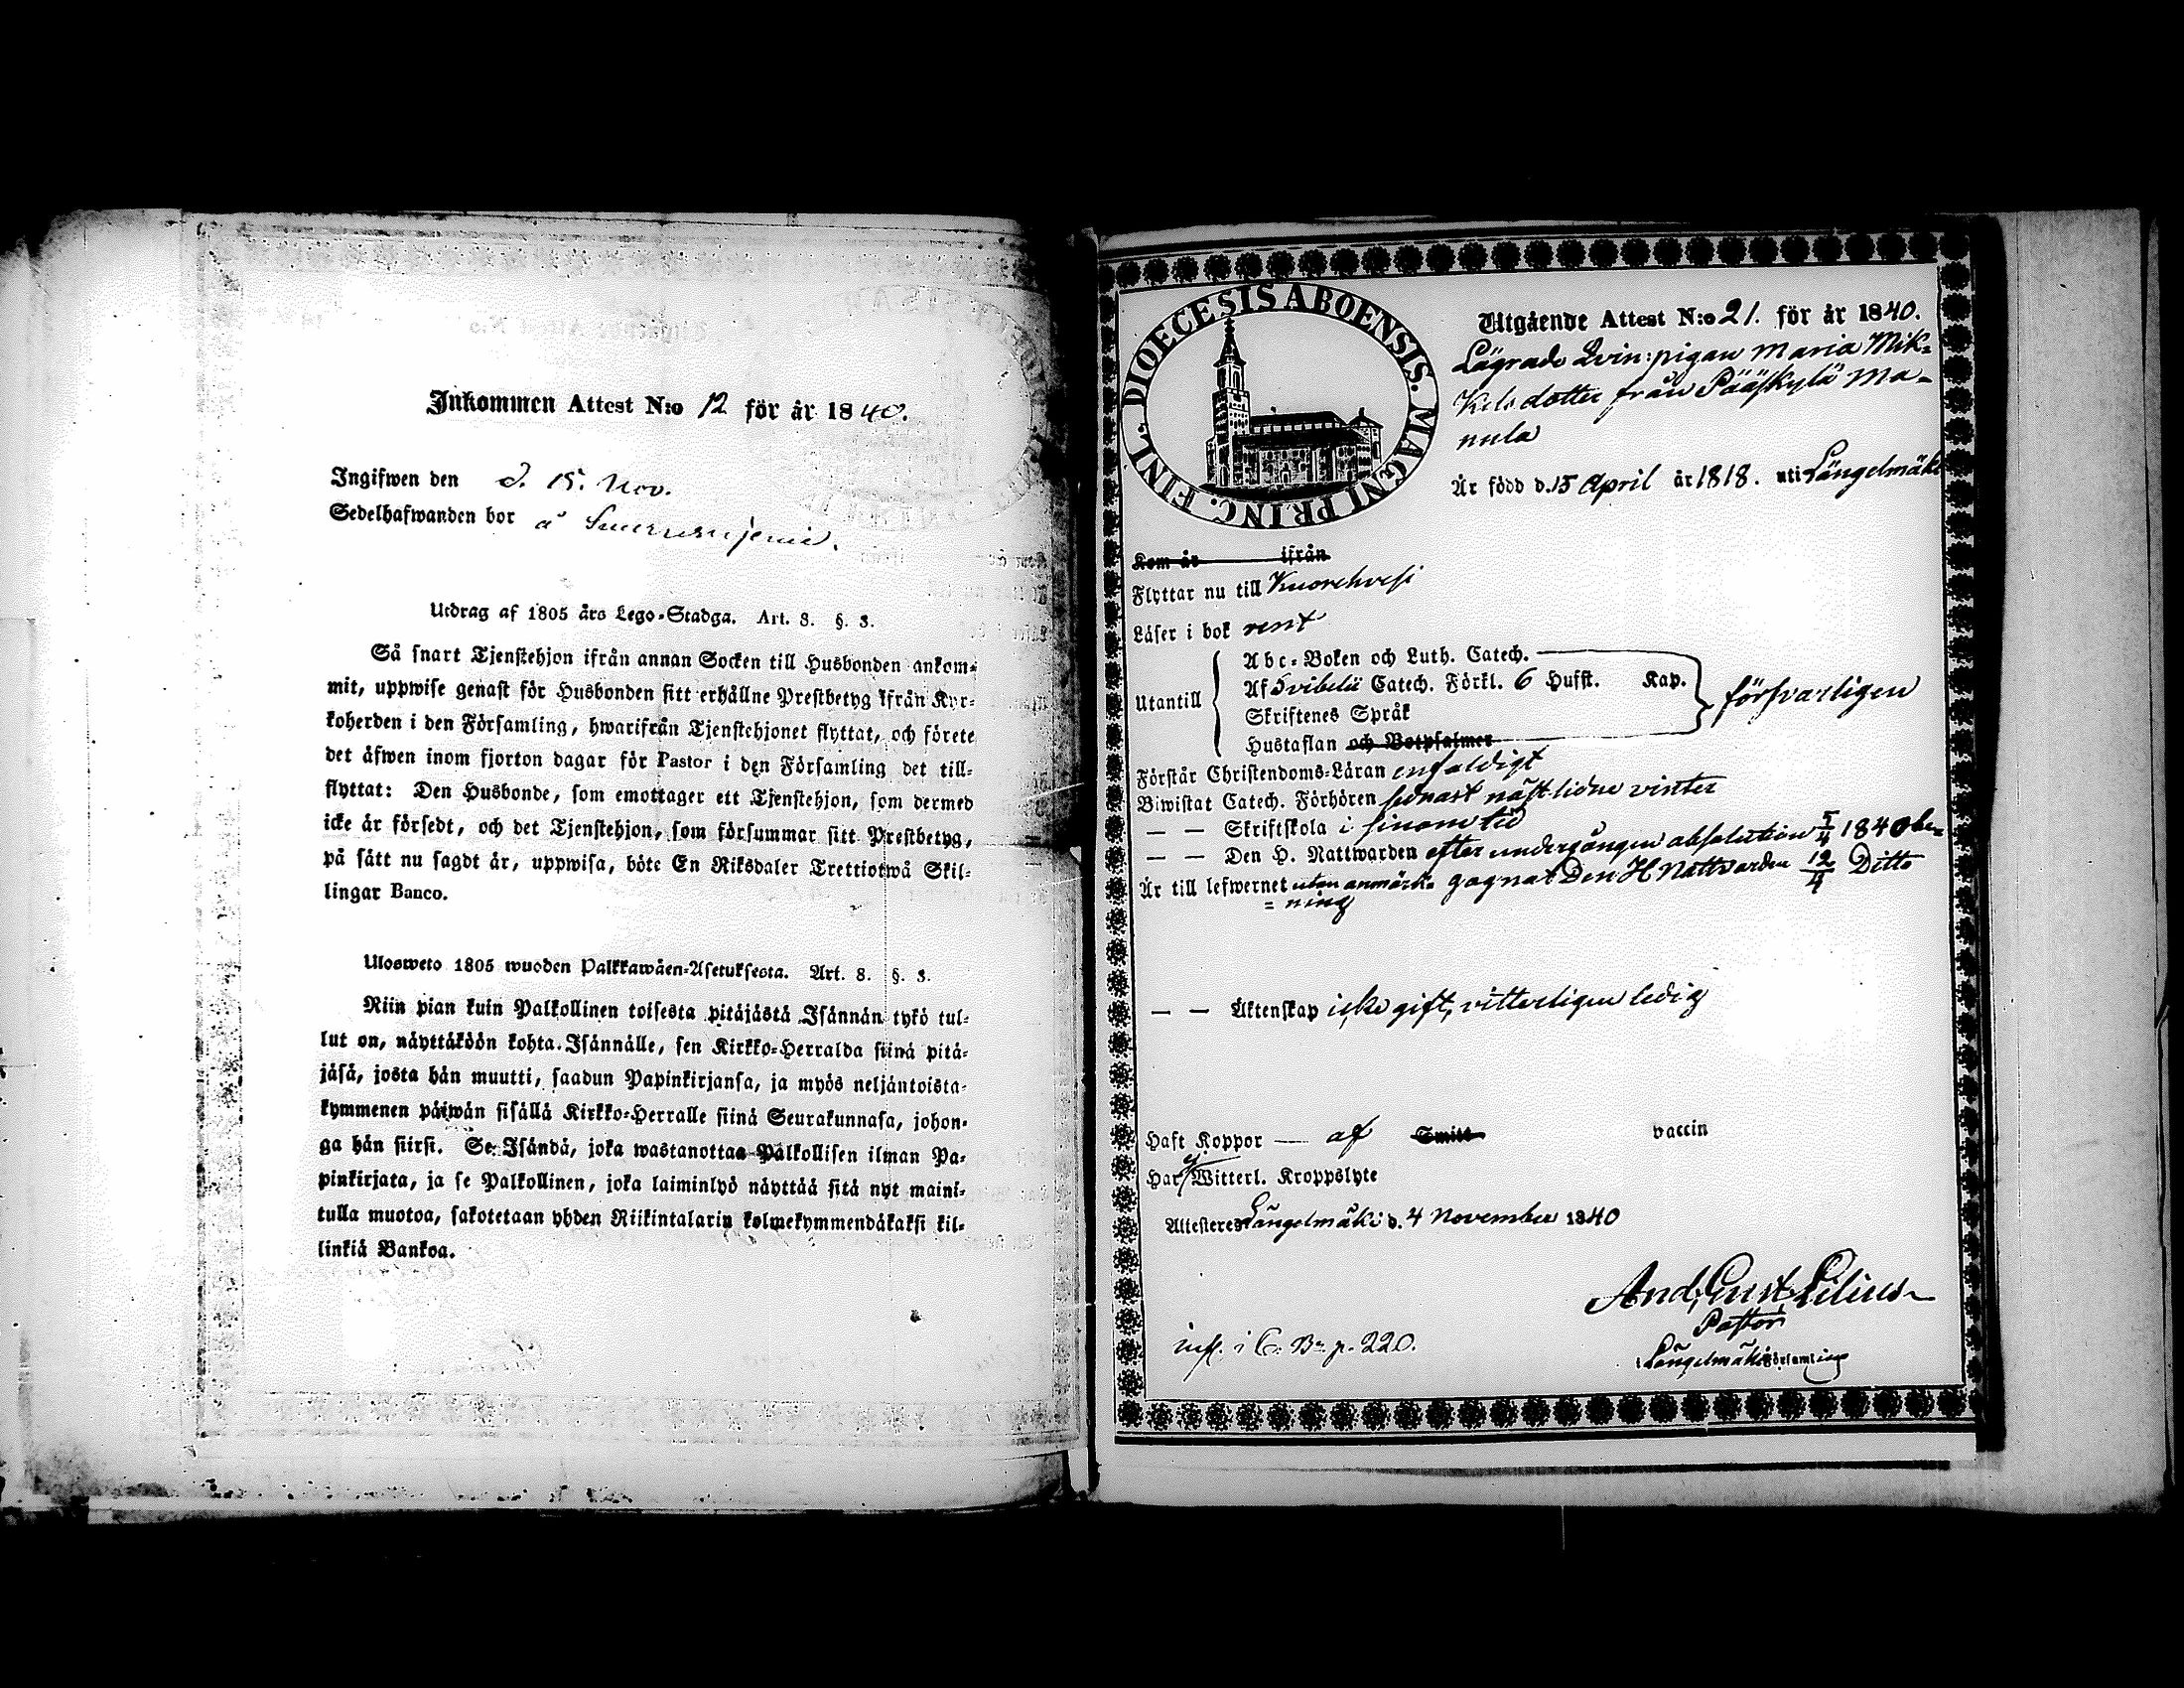 Inkommen Attest N:o 12 för år 1840.
Ingifwen den d. 15. Nov.
Sedelhafwanden bor å
Utdrag af 1805 års Lego-Stadga. Art. 8. §. 3.
Så snart Tjenstehjon ifrån annan Socken till Husbonden ankom-
mit, uppwise genast för Husbonden sitt erhållne Prestbetyg ifrån Kyr-
koherden i den Församling, hwarifrån Tjenstehjonet flyttat, och förete
det äfwen inom fjorton dagar för Pastor i den Församling det till-
flyttat: Den Husbonde, som emottager ett Tjenstehjon, som dermed
icke är försedt, och det Tjenstehjon, som försummar sitt Prestbetyg,
på sätt nu sagdt är, uppwisa, böte En Riksdaler Trettiotwå Skil-
lingar Banco.
Ulosweto 1805 wuoden Palkkawäen-Asetuksesta. Art. 8. §. 3.
Niin pian kuin Palkollinen toisesta pitäjästä Isännän tykö tul-
lut on, näyttäköön kohta Isännälle, sen Kirkko-Herralda siinä pitä-
jäsä, josta hän muutti, saadun Papinkirjansa, ja myös neljäntoista-
kymmenen päiwän sisällä Kirkko-Herralle siinä Seurakunnasa, johon-
ga hän siirsi. Se Isändä, joka wastanottaa Palkollisen ilman Pa-
pinkirjata, ja se Palkollinen, joka laiminlyö näyttää sitä nyt maini-
tulla muotoa, sakotetaan yhden Riikintalarin kolmekymmendäkaksi kil-
linkiä Bankoa.
DIOECESIS ABOENSIS. MAGNI PRINC. FINL.
Utgående Attest N:o 21. för år 1840.
Lägrade Qvin:pigan Maria Mik-
kelsdotter från Pääskylä Ma-
nula
Är född d. 15 April år 1818. uti Längelmäki
Kom år ifrån
Flyttar nu till Kuorehvesi
Läser i bok rent
Utantill
Abc-Boken och Luth. Catech.
Af Svibelii Catech. Förkl. 6 Hufst. Kap.
Skriftenes Språk
Hustaflan och Botpsalmer
försvarligen
Förstår Christendoms-Läran enfaldigt
Biwistat Catech. Förhören sednast näst lidne vinter
— — Skriftskola i sinom tid
— — Den H. Nattwarden efter undergången absolution 5/4 1840 be-
Är till lefwernet utan anmärk- gagnat Den H Nattvarden 12/4 Ditto
= ning
— — Äktenskap icke gift, vitterligen ledig
Haft Koppor — af Smitt vaccin
Har ej Witterl. Kroppslyte
Attesteres Längelmäki d. 4 November 1840
And. Gust. Lilius
Pastor
i Längelmäki Församling
inf. i C. Bn p. 220.